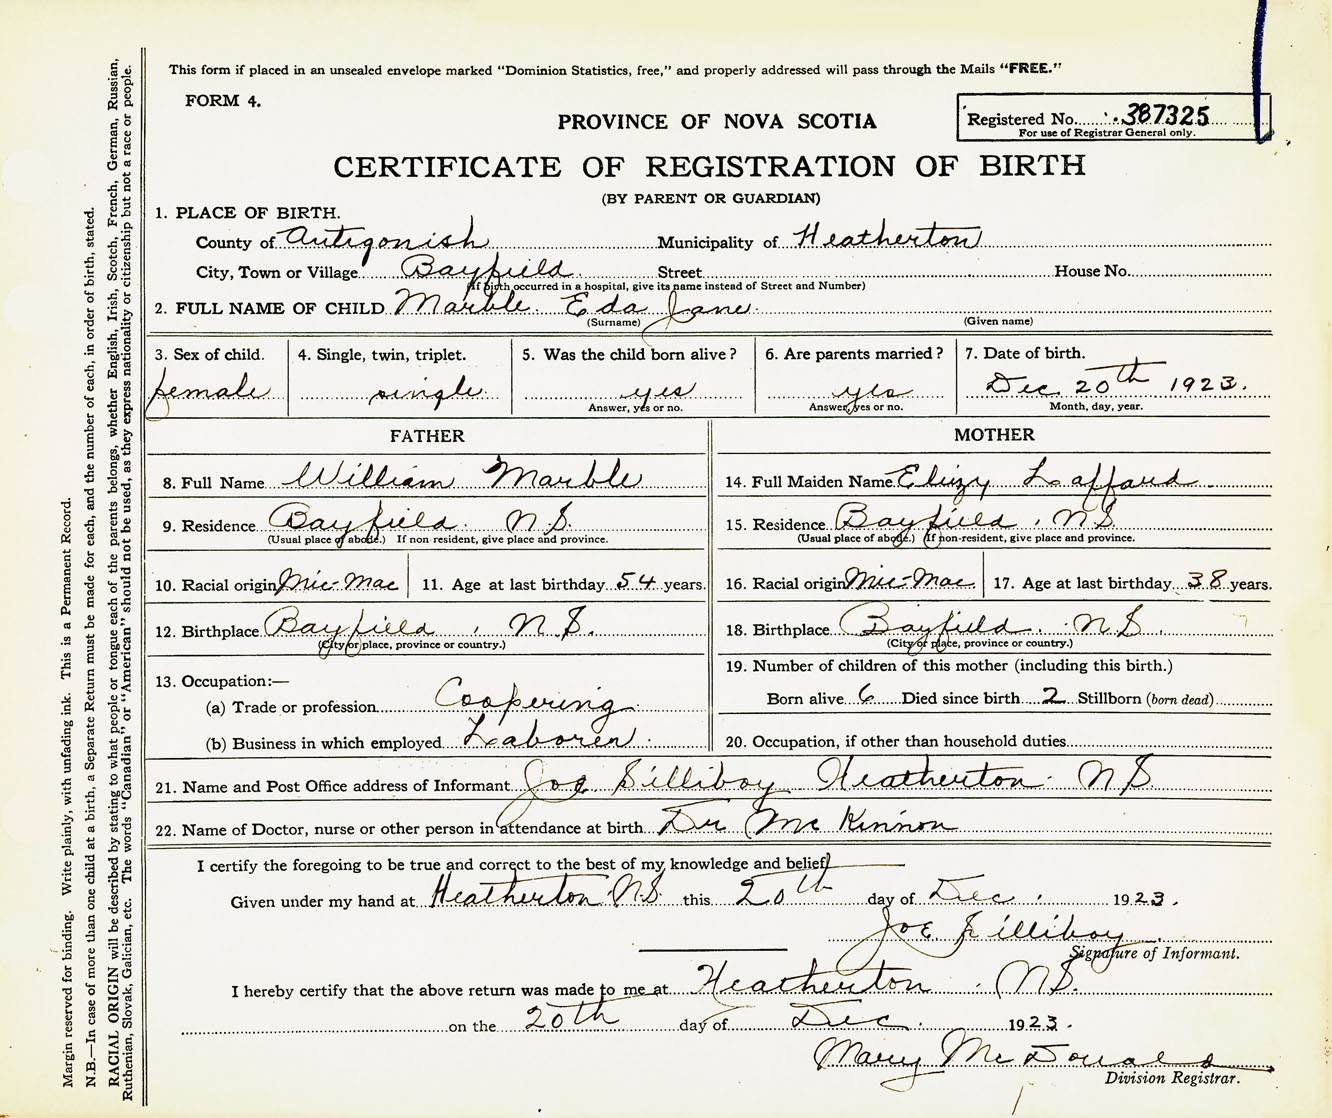 This form if placed in an unsealed envelope marked "Dominion Statistics, free," and properly addressed will pass through the Mails "FREE."
FORM 4.
PROVINCE OF NOVA SCOTIA
Registered No. 387325
For use of Registrar General only.
CERTIFICATE OF REGISTRATION OF BIRTH
(BY PARENT OR GUARDIAN)
1. PLACE OF BIRTH.
County of Antigonish Municipality of Heatherton
City, Town or Village Bayfield Street House No.
(If birth occurred in a hospital, give its name instead of Street and Number)
2. FULL NAME OF CHILD Marble Eda Jane
(Surname) (Given name)
3. Sex of child. 4. Single, twin, triplet. 5. Was the child born alive? 6. Are parents married? 7. Date of birth.
female single yes yes Dec 20th 1923.
Answer, yes or no. Answer, yes or no. Month, day, year.
FATHER MOTHER
8. Full Name William Marble 14. Full Maiden Name Elizy Laffard
9. Residence Bayfield. N.S. 15. Residence Bayfield, N.S.
(Usual place of abode.) If non-resident, give place and province. (Usual place of abode.) (If non-resident, give place and province.
10. Racial origin Mic-Mac 11. Age at last birthday 54 years. 16. Racial origin Mic-Mac 17. Age at last birthday 38 years.
12. Birthplace Bayfield, N.S. 18. Birthplace Bayfield. N.S.
(City or place, province or country.) (City or place, province or country.)
13. Occupation:— 19. Number of children of this mother (including this birth.)
(a) Trade or profession Coopering Born alive 6 Died since birth 2 Stillborn (born dead)
(b) Business in which employed Laborer 20. Occupation, if other than household duties
21. Name and Post Office address of Informant Joe Silliboy Heatherton N.S.
22. Name of Doctor, nurse or other person in attendance at birth Dr McKinnon
I certify the foregoing to be true and correct to the best of my knowledge and belief
Given under my hand at Heatherton N.S. this 20th day of Dec. 1923.
Joe Silliboy
Signature of Informant.
I hereby certify that the above return was made to me at Heatherton. N.S.
on the 20th day of Dec. 1923.
Mary McDonald
Division Registrar.
Margin reserved for binding. Write plainly, with unfading ink. This is a Permanent Record.
N.B.—In case of more than one child at a birth, a Separate Return must be made for each, and the number of each, in order of birth, stated.
RACIAL ORIGIN will be described by stating to what people or tongue each of the parents belongs, whether English, Irish, Scotch, French, German, Russian,
Ruthenian, Slovak, Galician, etc. The words "Canadian" or "American" should not be used, as they express nationality or citizenship but not a race or people.